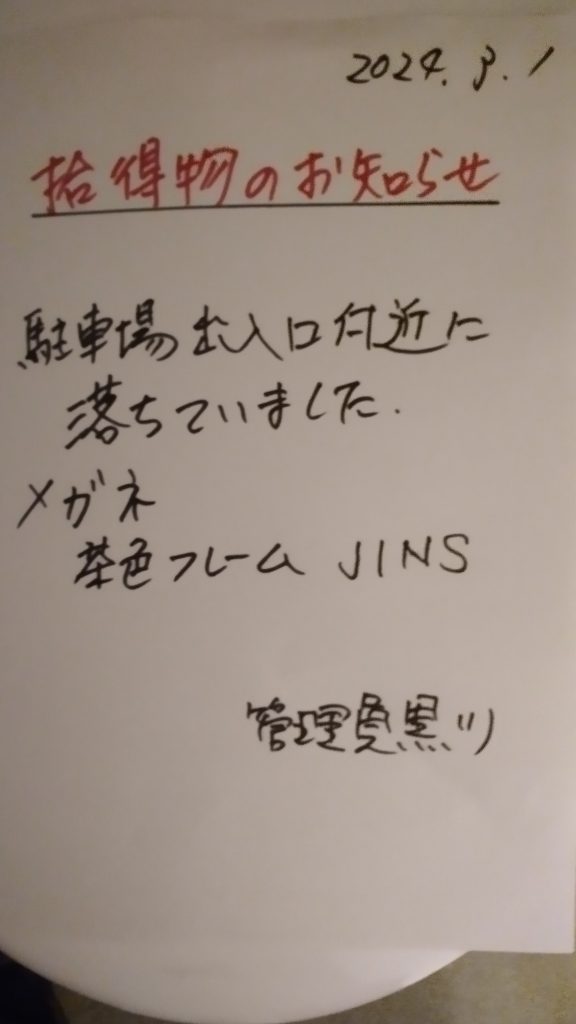 2024.3.1
拾得物のお知らせ
駐車場出入口付近に
落ちていました.
メガネ
茶色フレーム JINS
管理員黒川